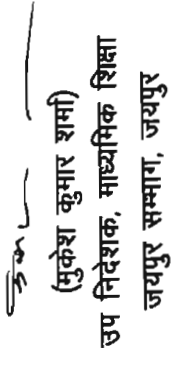 (मुकेश कुमार शर्मा)
उप निदेशक, माध्यमिक शिक्षा
जयपुर सम्भाग, जयपुर